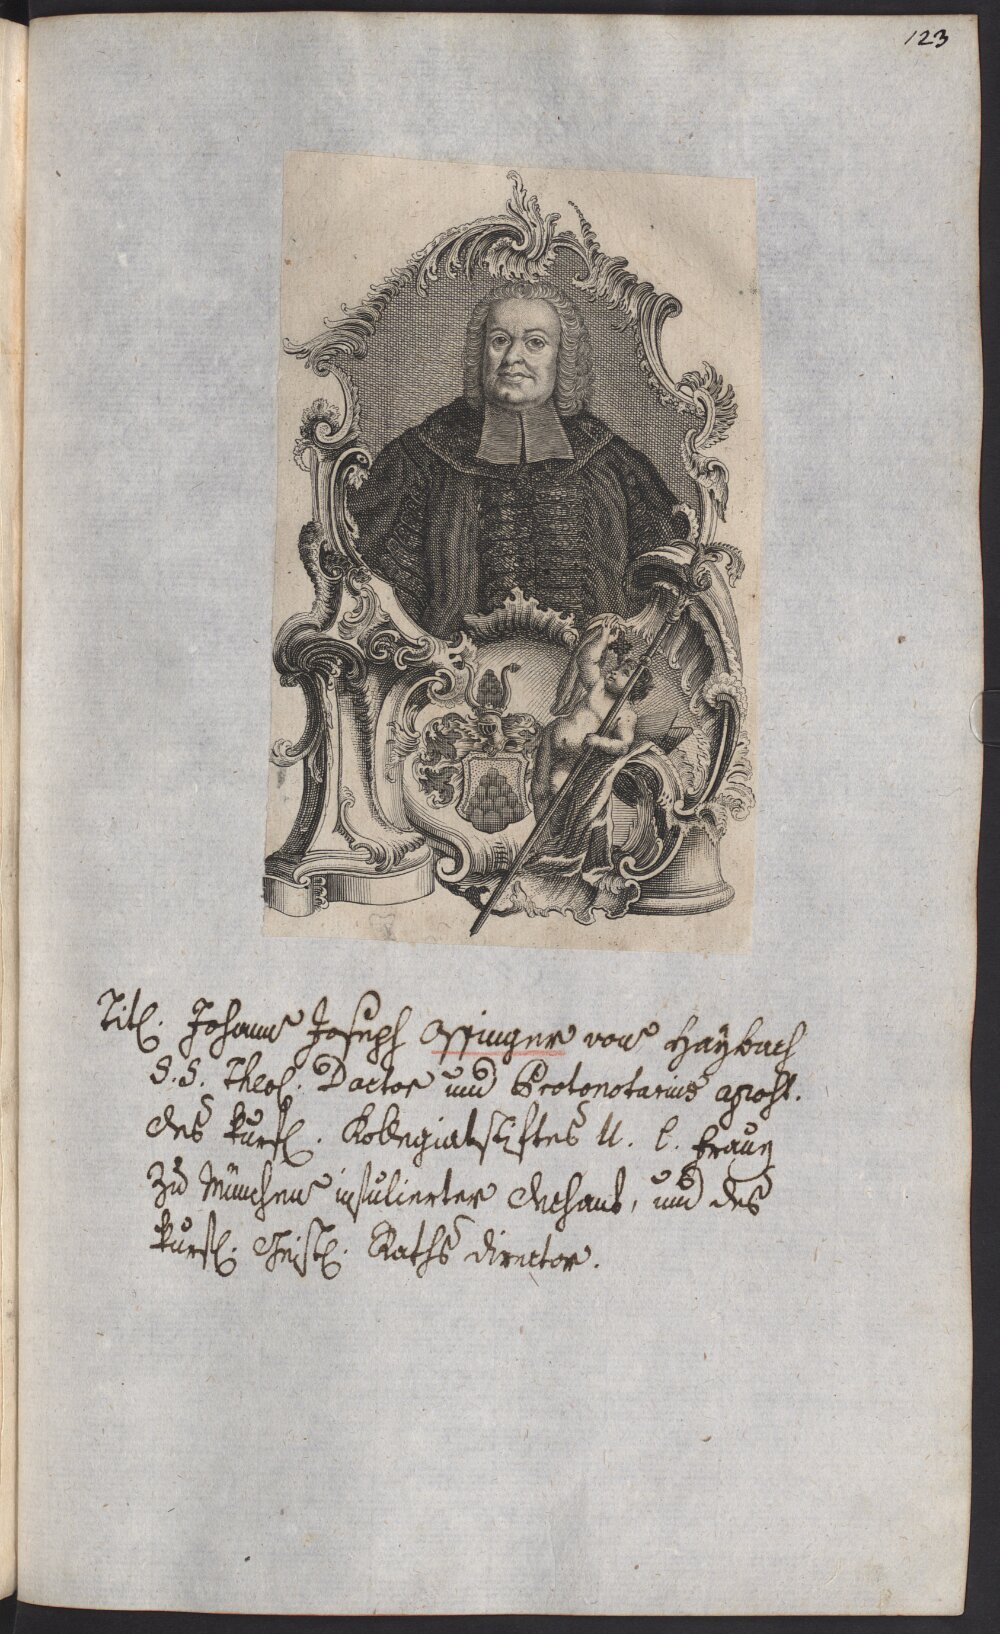 123
Titl. Johann Joseph Ossinger von Haybach
S.S. Theol. Doctor und Protonotarius apost.
des kurfl. Kollegiatstiftes U. l. Frauen
zu München infulierter Dechant, und des
kurfl. Geistl. Raths Director.